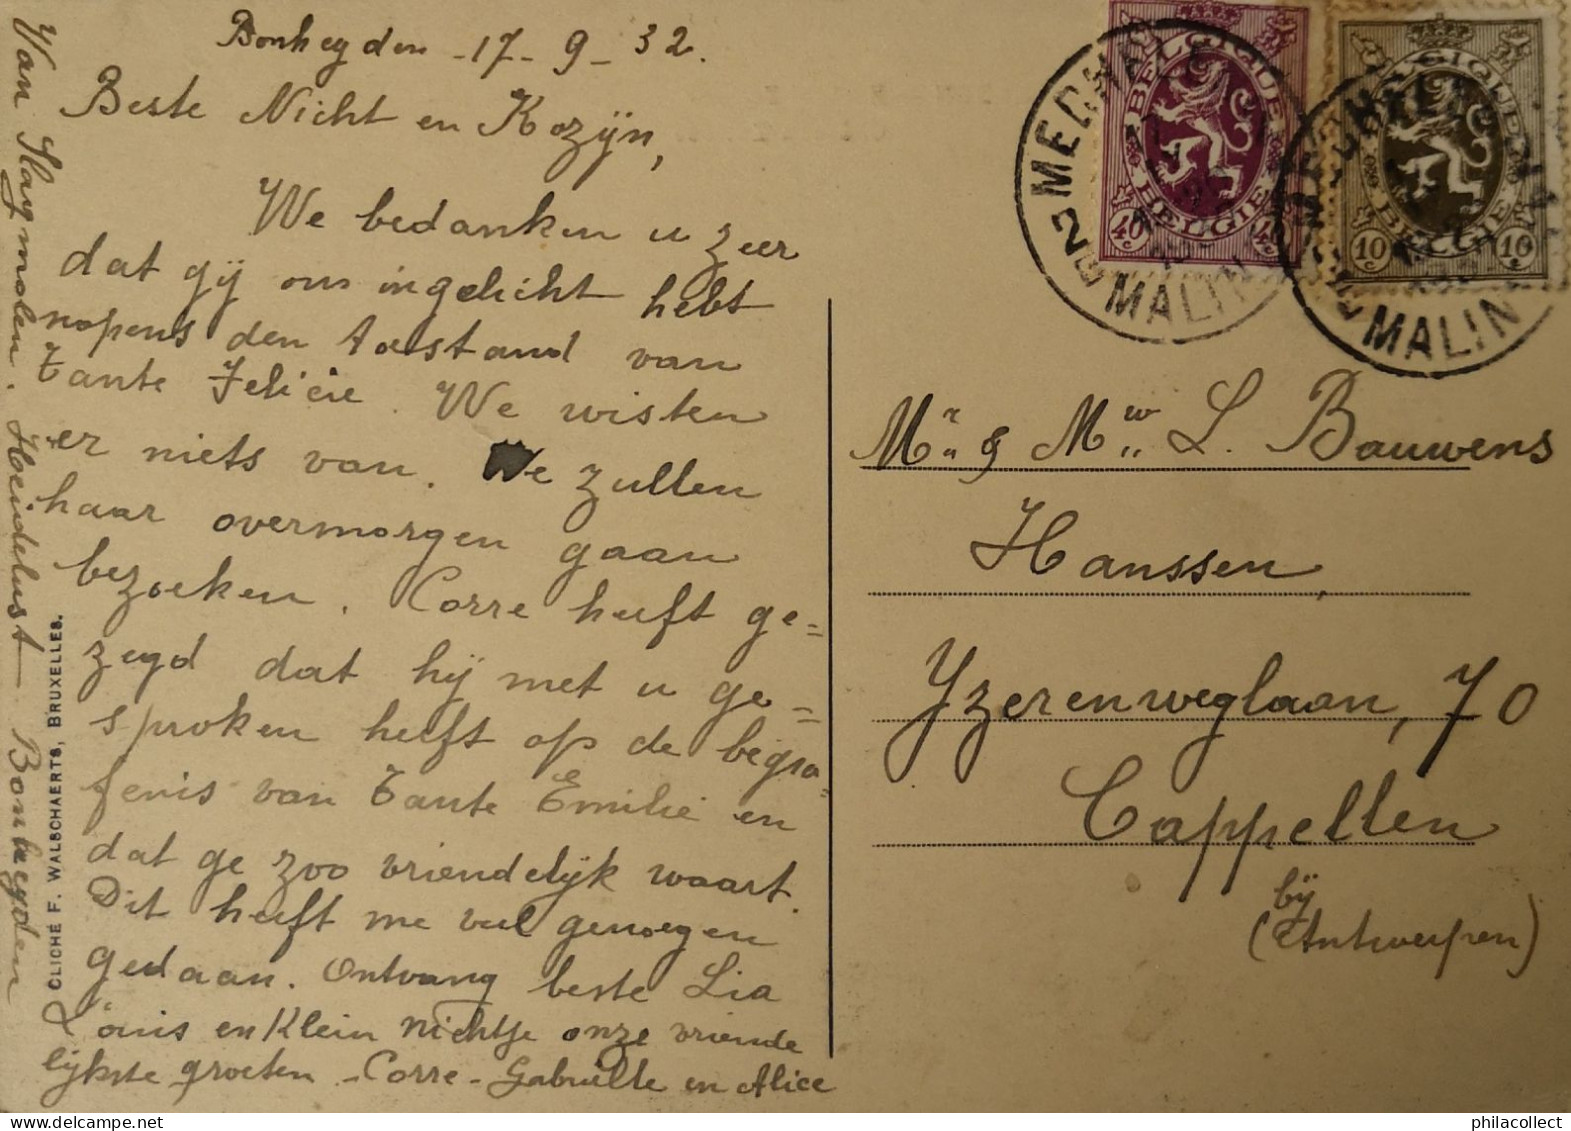 Bonheyden -17-9-32.
Beste Nicht en Kozijn,
We bedanken u zeer
dat gij ons ingelicht hebt
nopens den toestand van
tante Felicie. We wisten
er niets van. We zullen
haar overmorgen gaan
bezoeken. Corre heeft ge=
zegd dat hij met u ge=
sproken heeft op de begra
fenis van Tante Emilie en
dat ge zoo vriendelijk waart.
Dit heeft me veel genoegen
gedaan. Ontvang beste Lia
Louis en Klein nichtje onze vriende
lijkste groeten - Corre - Gabrielle en Alice
Van Slaymolen. Heidelust Bonheyden
CLICHÉ F. WALSCHAERTS, BRUXELLES.
BELGIQUE
40c BELGIË 40c
BELGIQUE
10c BELGIË 10c
MECHELEN
2B MALINES
MECHELEN
MALINES
Mr & Mw L. Bauwens
Hanssen,
Yzerenweglaan, 70
Cappellen
bij
(Antwerpen)
philacollect